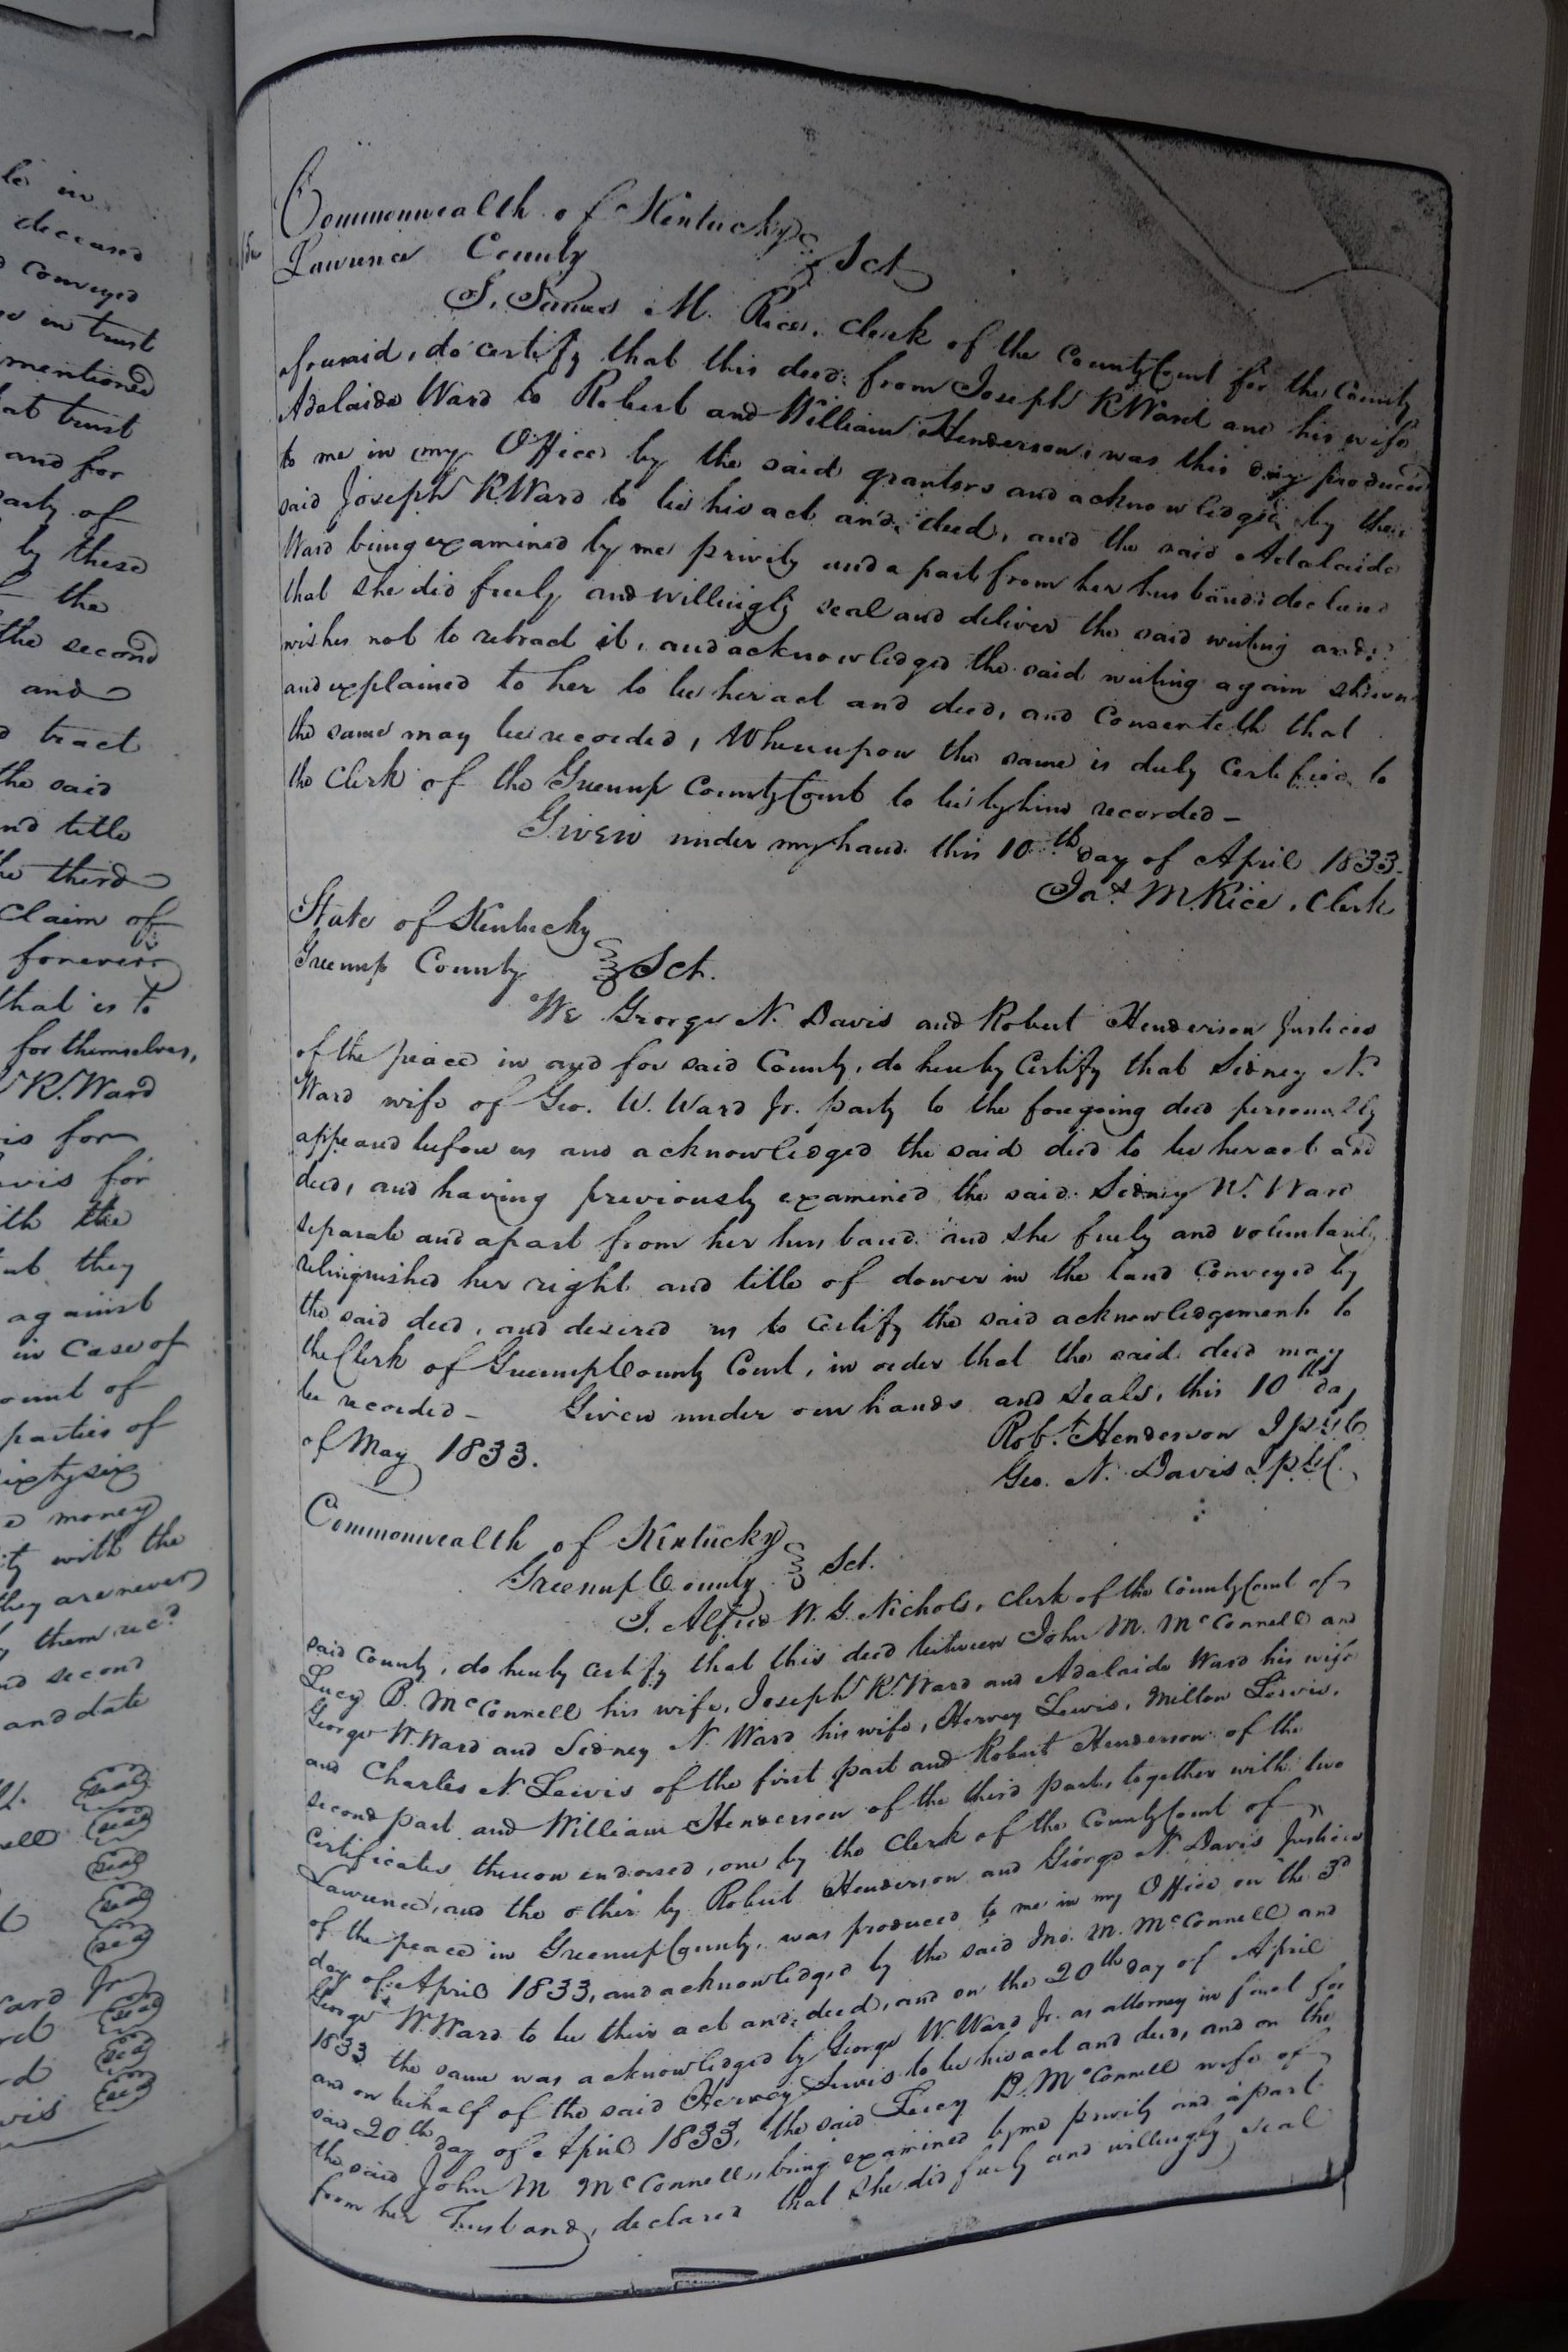 le in
deceased
conveyed
in trust
mentioned
at trust
and for
party of
by these
the
the second
and
tract
the said
nd title
he third
claim of
forever
that is to
for themselves,
R. Ward
is for
vis for
ith the
ut they
against
in case of
ount of
parties of
ixty six
money
ty with the
they are never
them rec?
nd second
and date
seal
ell seal
seal
seal
seal
Ward Jr
rd seal
rd seal
wis seal
Commonwealth of Kentucky
Lawrence County Sct
I, James M. Rice, Clerk of the County Court for the County
aforesaid, do certify that this deed from Joseph R Ward and his wife
Adelaide Ward to Robert and William Henderson, was this day produced
to me in my Office by the said grantors and acknowledged by the
said Joseph R Ward to be his act and deed, and the said Adalaide
Ward being examined by me privily and a part from her husband declared
that she did freely and willingly seal and deliver the said writing and
wishes not to retract it, and acknowledged the said writing again shewn
and explained to her to be her act and deed, and consenteth that
the same may be recorded, Whereupon the same is duly certified to
the Clerk of the Greenup County Court to be by him recorded –
Given under my hand this 10th day of April 1833.
Jas. M. Rice, Clerk
State of Kentucky
Greenup County Sct.
We George N. Davis and Robert Henderson Justices
of the peace in and for said County, do hereby Certify that Sidney N.
Ward wife of Geo. W. Ward Jr. party to the foregoing deed personally
appeared before us and acknowledged the said deed to be her act and
deed, and having previously examined the said Sidney N. Ward
separate and apart from her husband and she freely and voluntarily
relinquished her right and title of dower in the land conveyed by
the said deed, and desired us to certify the said acknowledgement to
the Clerk of Greenup County Court, in order that the said deed may
be recorded – Given under our hands and seals, this 10th day
of May 1833.
Robt. Henderson JPGC
Geo. N. Davis JPGC.
Commonwealth of Kentucky
Greenup County Sct.
I, Alfred W. G. Nichols, Clerk of the County Court of
said County, do hereby certify that this deed between John M. McConnell and
Lucy B. McConnell his wife, Joseph R. Ward and Adalaide Ward his wife
George W. Ward and Sidney N. Ward his wife, Hervey Lewis, Milton Lewis,
and Charles N. Lewis of the first part and Robert Henderson of the
second part and William Henderson of the third part, together with two
certificates thereon endorsed, one by the Clerk of the County Court of
Lawrence, and the other by Robert Henderson and George N. Davis Justices
of the peace in Greenup County, was produced to me in my Office on the 3d
day of April 1833, and acknowledged by the said Jno. M. McConnell and
George W. Ward to be their act and deed, and on the 20th day of April
1833 the same was acknowledged by George W. Ward Jr. as attorney in fact for
and on behalf of the said Hervey Lewis to be his act and deed, and on the
said 20th day of April 1833, the said Lucy B. McConnell wife of
the said John M McConnell, being examined by me privily and apart
from her Husband, declared that she did freely and willingly seal